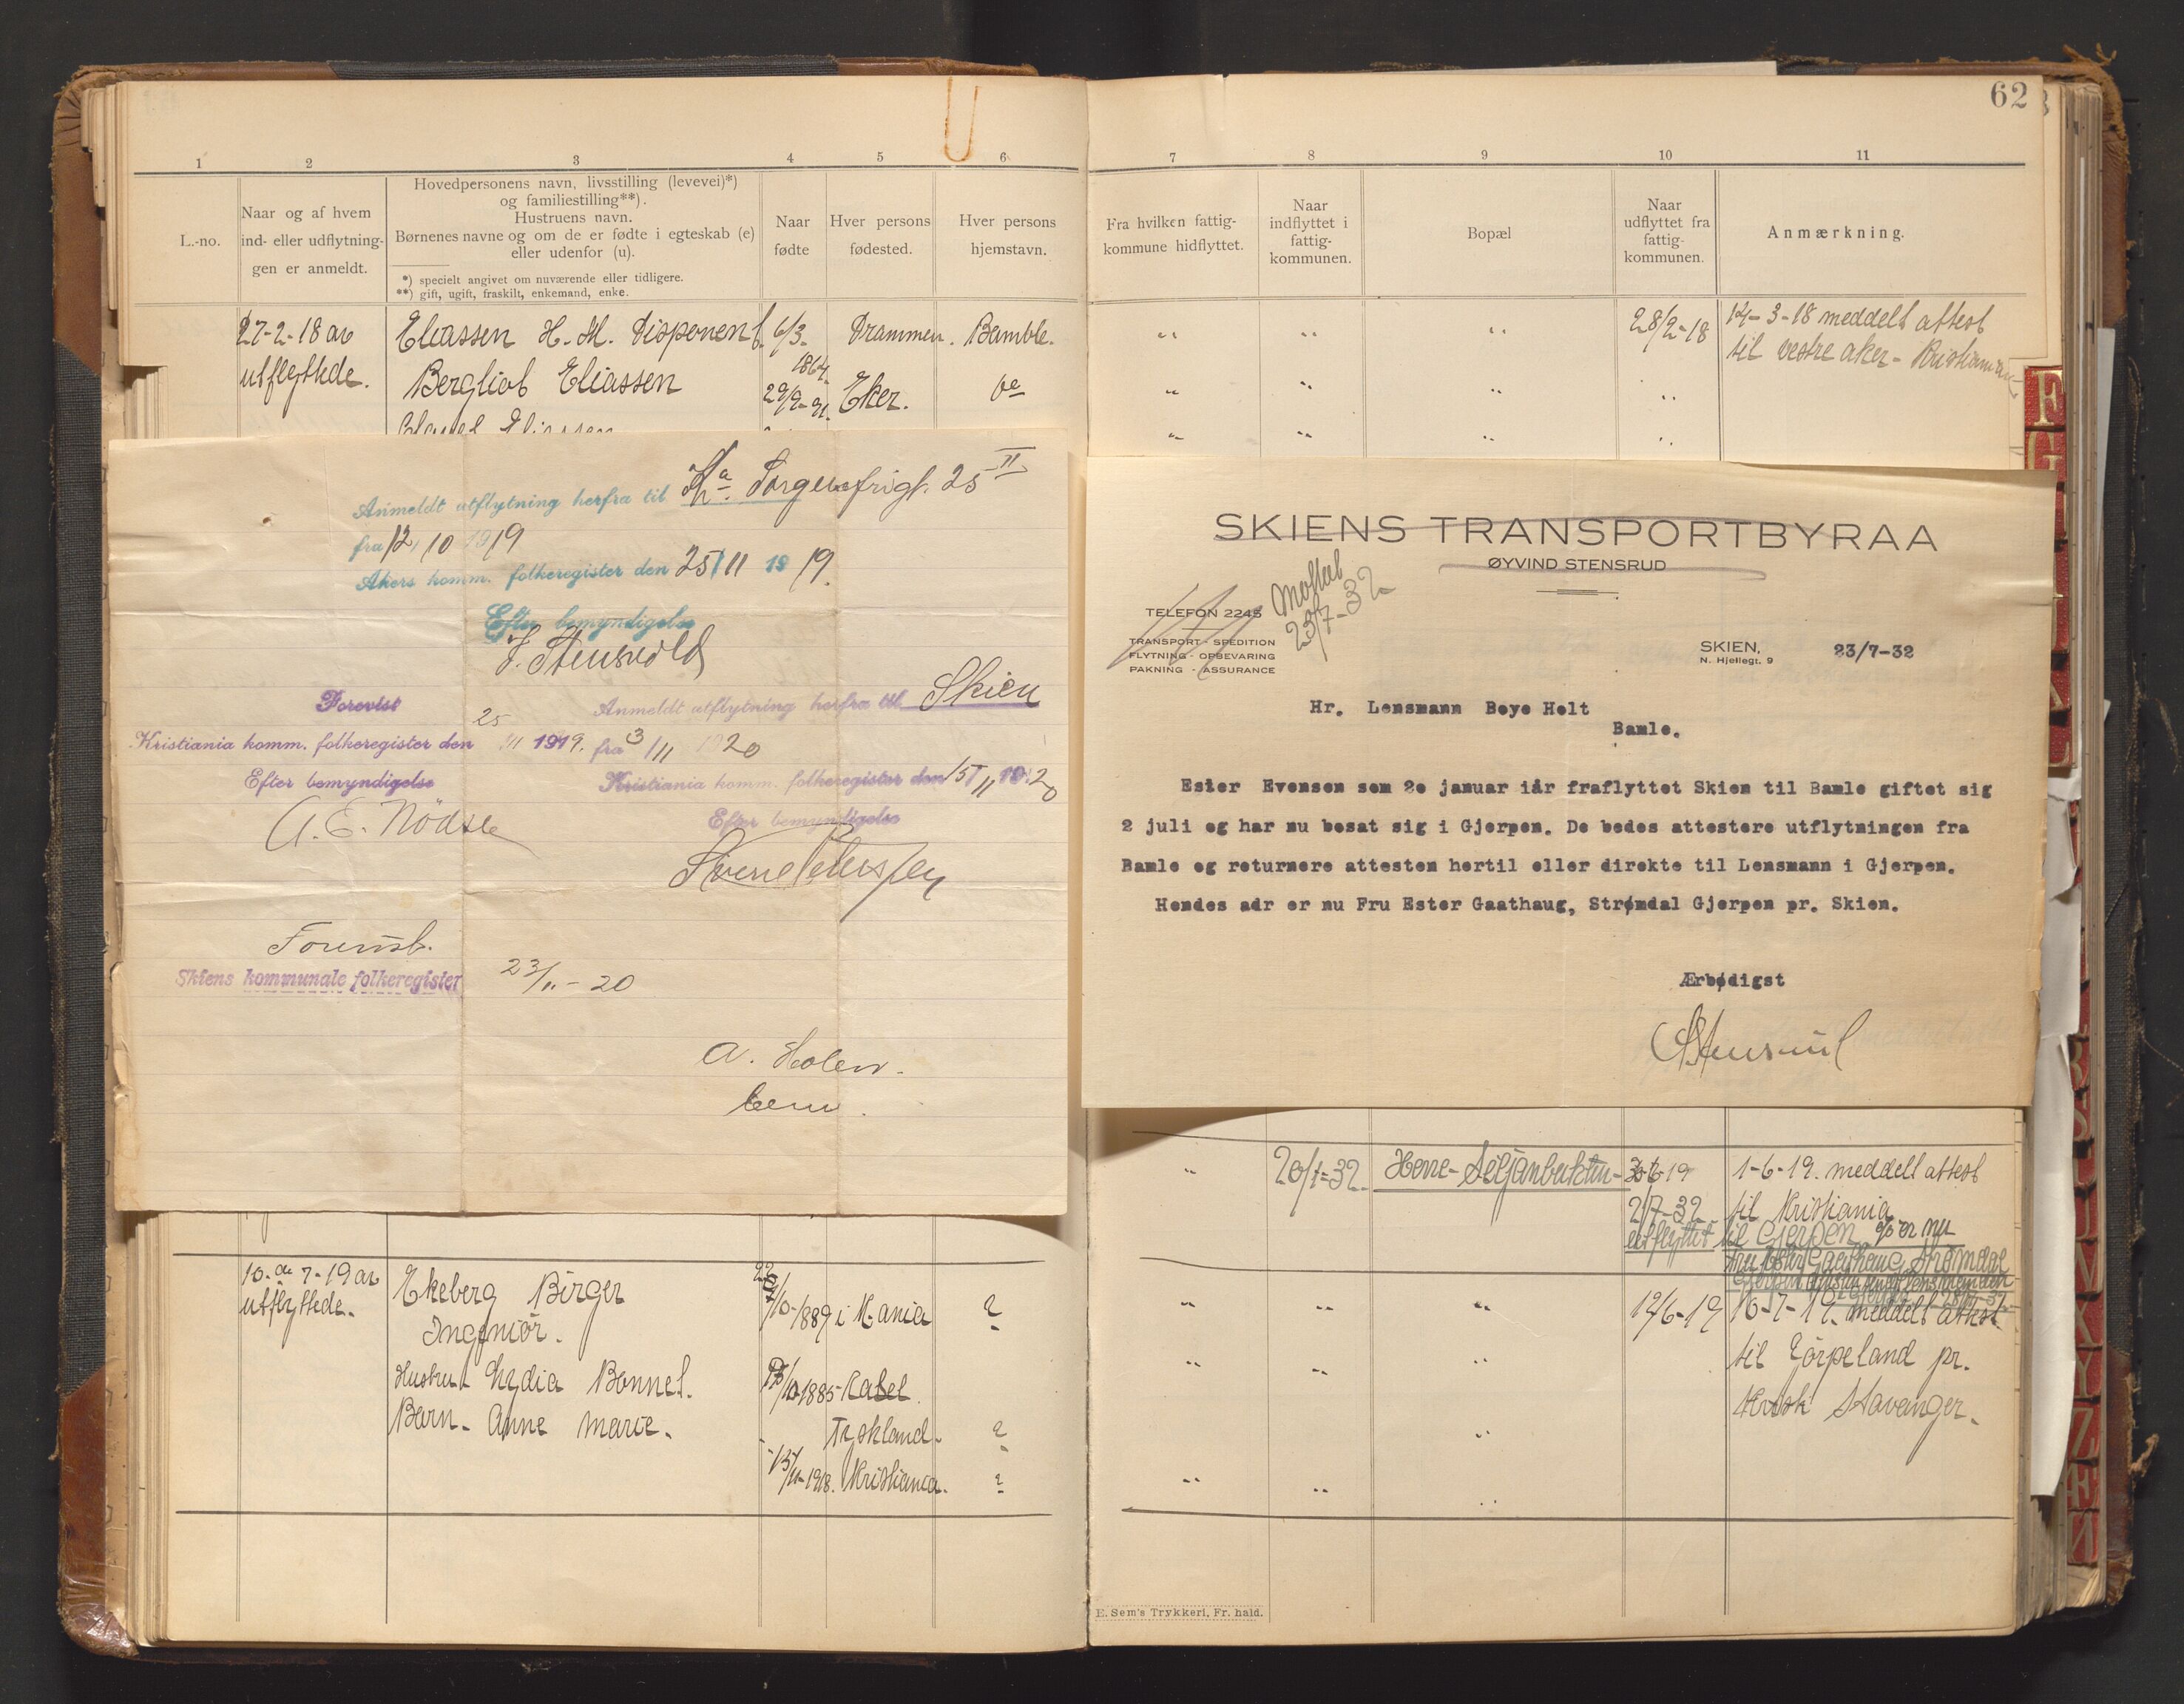 62
1 2 3 4 5 6
7 8 9 10 11
L.-no.
Naar og af hvem
ind- eller udflytnin-
gen er anmeldt.
Hovedpersonens navn, livsstilling (levevei)*)
og familiestilling**).
Hustruens navn.
Børnenes navne og om de er fødte i egteskab (e)
eller udenfor (u).
*) specielt angivet om nuværende eller tidligere.
**) gift, ugift, fraskilt, enkemand, enke.
Naar
fødte
Hver persons
fødested.
Hver persons
hjemstavn.
Fra hvilken fattig-
kommune hidflyttet.
Naar
indflyttet i
fattig-
kommunen.
Bopæl
Naar
udflyttet fra
fattig-
kommunen.
Anmærkning.
27-2-18 av
utflyttede.
Eliassen H. M. Disponent
6/3-
1864
Drammen. Bamble.
Bergliot Eliassen
29/9-91.
Eker. do
Eliassen
28/2-18
14-3-18 meddelt attest
til vestre aker - Kristiania
Anmeldt utflytning herfra til Kra. Sorgenfrigt. 25 II
fra 12/10 1919
Akers komm. folkeregister den 25/11 1919.
Efter bemyndigelse
J. Stensvold
Forevist
Kristiania komm. folkeregister den 25/11 1919.
Efter bemyndigelse
A. E. Nödsle
Anmeldt utflytning herfra til Skien
fra 3/11 1920
Kristiania komm. folkeregister den 15/11 1920
Efter bemyndigelse
Forevist.
Skiens kommunale folkeregister 23/11-20
A. Holen.
bem.
SKIENS TRANSPORTBYRAA
ØYVIND STENSRUD
TELEFON 2245
TRANSPORT - SPEDITION
FLYTNING - OPBEVARING
PAKNING - ASSURANCE
Mottat
23/7-32
SKIEN, 23/7-32
N. Hjellegt. 9
Hr. Lensmann Boye Holt
Bamle.
Ester Evensen som 20 januar iår fraflyttet Skien til Bamle giftet sig
2 juli og har nu bosat sig i Gjerpen. De bedes attestere utflytningen fra
Bamle og returnere attesten hertil eller direkte til Lensmann i Gjerpen.
Hendes adr er nu Fru Ester Gaathaug, Strømdal Gjerpen pr. Skien.
Ærbødigst
Ø Stensrud
20/1-32. Herre-Seljanbuktin-
1-6-19. meddelt attest
2/7-32 til Kristiania
utflyttet til Gjerpen og er nu
fru Ester Gaathaug Strømdal
10-de 7-19 av
utflyttede.
Ekeberg Birger
Ingeniör.
Hustru Lydia Bonnet.
Barn- Anne Marie.
/10-1889 i K.ania ?
/10-1885- Kassel
Tyskland. ?
13/11-1918. Kristiania. ?
12/6-19
10-7-19. meddelt attest
til Jörpeland pr.
Stavanger.
E. Sem's Trykkeri, Fr. hald.